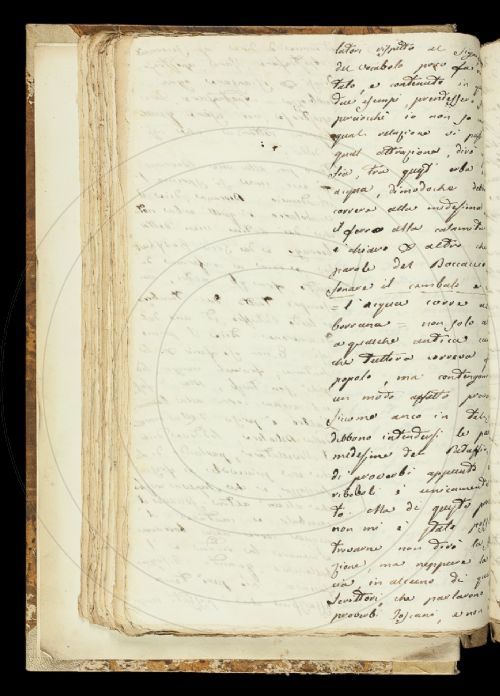 latori rispetto al Sign
del Combalo poco fa
tato, e contenuto in
due esempi, prendessero
perciocchè io non so
qual relazione vi pass
qual attrazione, dirò
sia, tra quest' erba
acqua, dimodochè deb
correre alla medesima
il ferro alla calamita
è chiaro che altro che
parole del Boccaccio
sonare il cembalo e
= l'acqua corre a
borrana = non solo a
a qualche antica
che tuttora correva
popolo, ma contengono
un modo affatto prov
Siccome anco in tal
debbono intendersi le pa
medesime del Pataffio
di proverbi appunto
riboboli è unicamente
to. Ma di questo pro
non mi è stato poss
trovarne non dirò la
zione, ma neppure la
via in alcuno di que
Scrittori, che parlarono
proverbi Toscani, e non